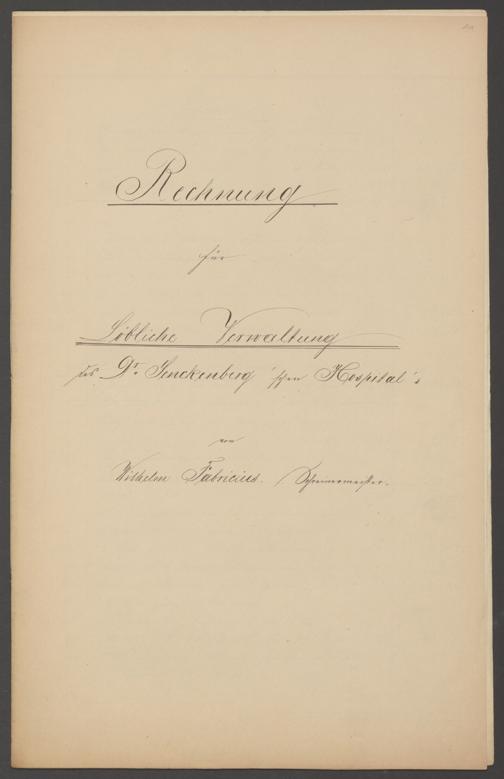 Rechnung
für
Löbliche Verwaltung
des Dr. Senckenberg'schen Hospital's
von
Wilhelm Fabricius. Schreinermeister.